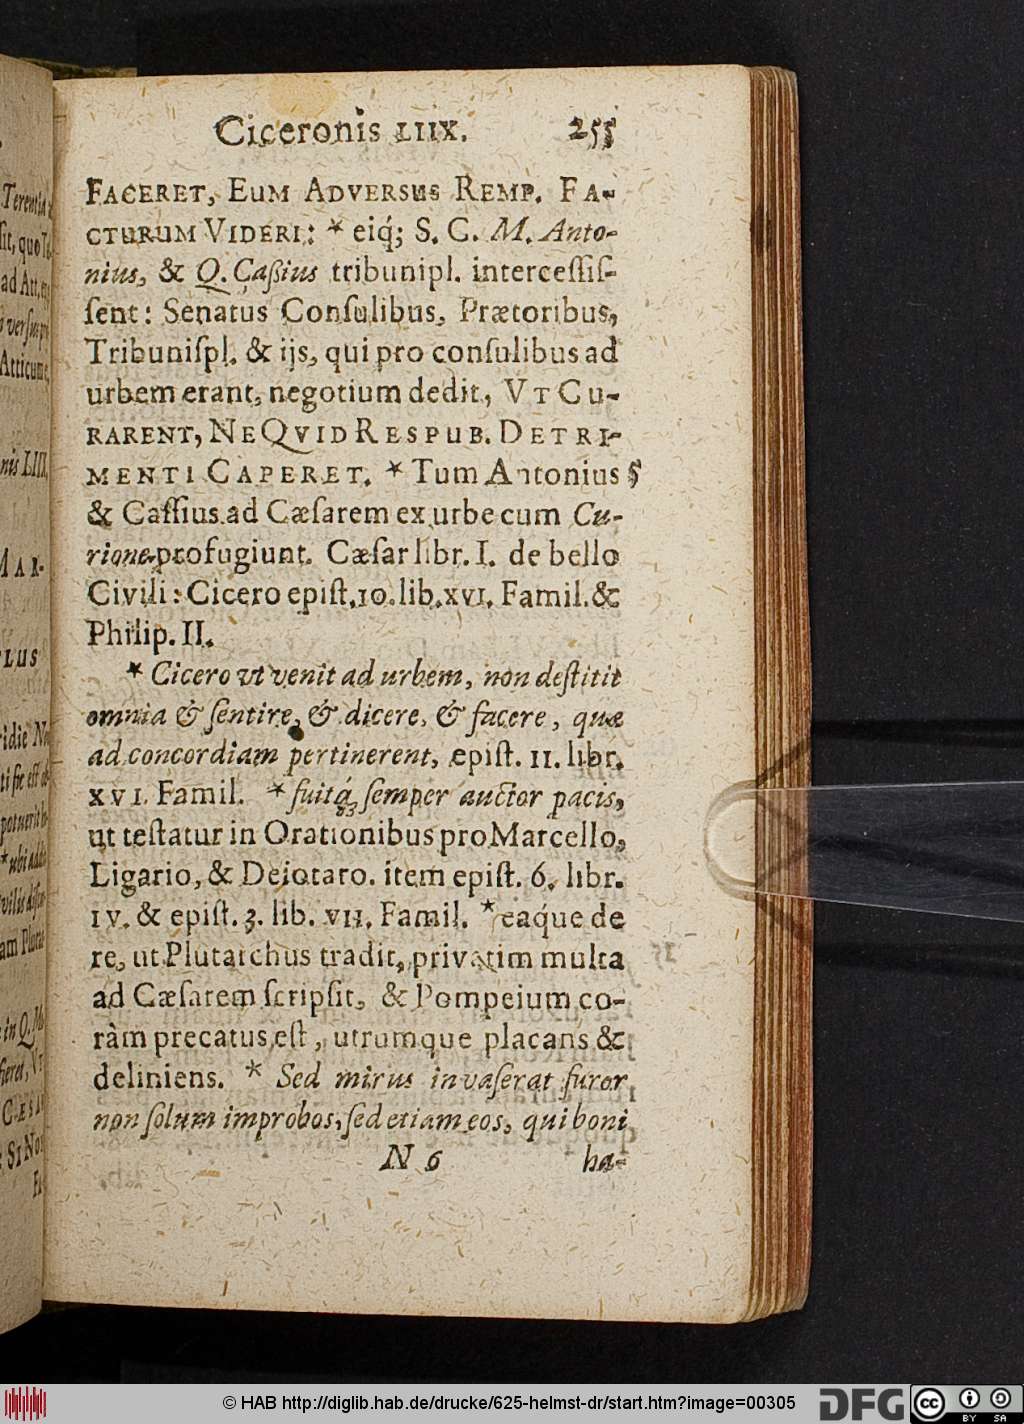 Ciceronis LIIX. 255
FACERET, EUM ADVERSUS REMP. FA-
CTURUM VIDERI: * eiq́; S. C. M. Anto-
nius, & Q. Caßius tribunipl. interceſſiſ-
ſent: Senatus Conſulibus, Prætoribus,
Tribuniſpl. & ijs, qui pro conſulibus ad
urbem erant, negotium dedit, VT CU-
RARENT, NE QVID RESPUB. DETRI-
MENTI CAPERET. * Tum Antonius 5
& Caſſius ad Cæſarem ex urbe cum Cu-
rione profugiunt. Cæſar libr. I. de bello
Civili: Cicero epiſt. 10. lib. XVI. Famil. &
Philip. II.
* Cicero vt venit ad urbem, non deſtitit
omnia & ſentire, & dicere, & facere, quæ
ad concordiam pertinerent, epiſt. 11. libr.
XVI. Famil. * fuitq́ ſemper auctor pacis,
ut teſtatur in Orationibus pro Marcello,
Ligario, & Deiotaro. item epiſt. 6. libr.
IV. & epiſt. 3. lib. VII. Famil. * eaq́ue de
re, ut Plutarchus tradit, privatim multa
ad Cæſarem ſcripſit, & Pompeium co-
ràm precatus eſt, utrumque placans &
deliniens. * Sed mirus invaſerat furor
non ſolum improbos, ſed etiam eos, qui boni
N 6 ha-
Terentia
ſit, quo
ad Att.
Atticum
nis LIII.
MAR-
LUS
ridie
potuerit
* ubi
am
in Q.
fieret,
SI NO
FA-
© HAB http://diglib.hab.de/drucke/625-helmst-dr/start.htm?image=00305
DFG
cc
BY SA